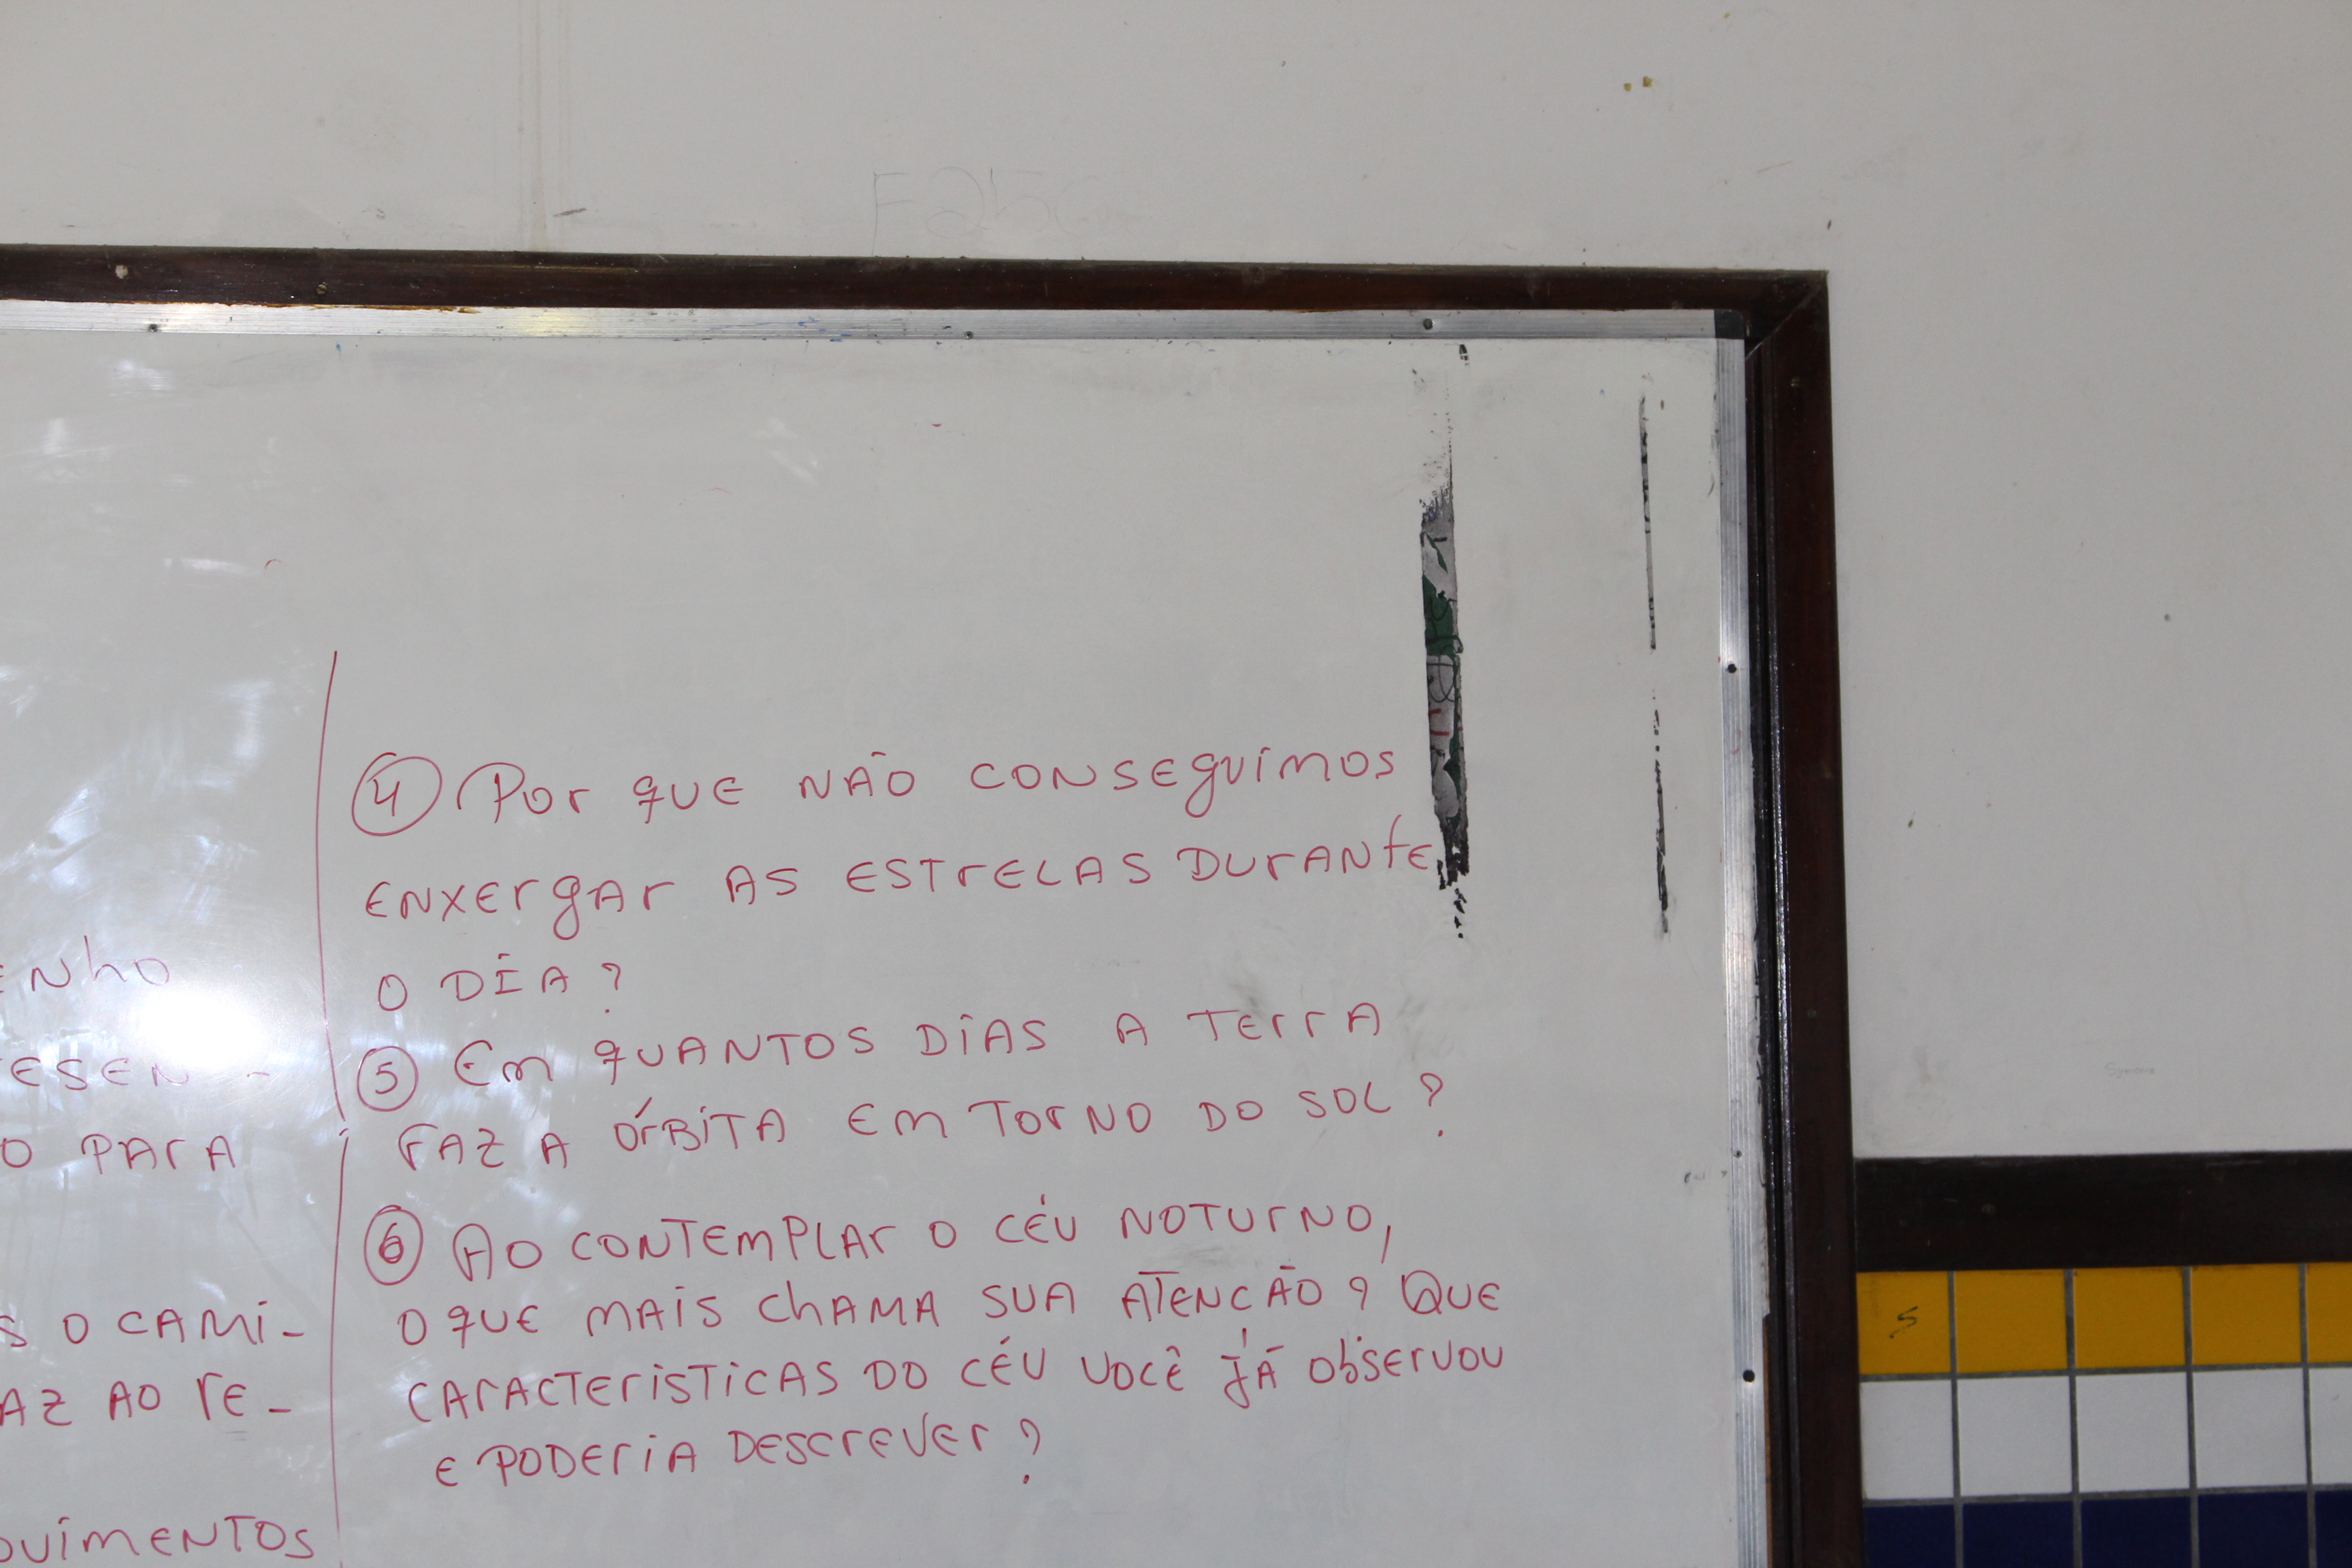 ④ Por que NÃO CONSEguimos
ENXErgAr AS ESTrELAS DUrANtE
O DIA?
⑤ Em quANTOS DiAS A TErrA
FAZ A ÓrBiTA Em TOrNO DO SOL?
⑥ AO CONTEmPLAr O CÉU NOTUrNO,
O quE MAiS ChAMA SUA ATENCÃO? QUE
CArACTEriSTiCAS DO CÉU VOCÊ JÁ ObSErVOU
E PODEriA DESCrEVEr?
O PArA
S O CAMi-
AZ AO rE-